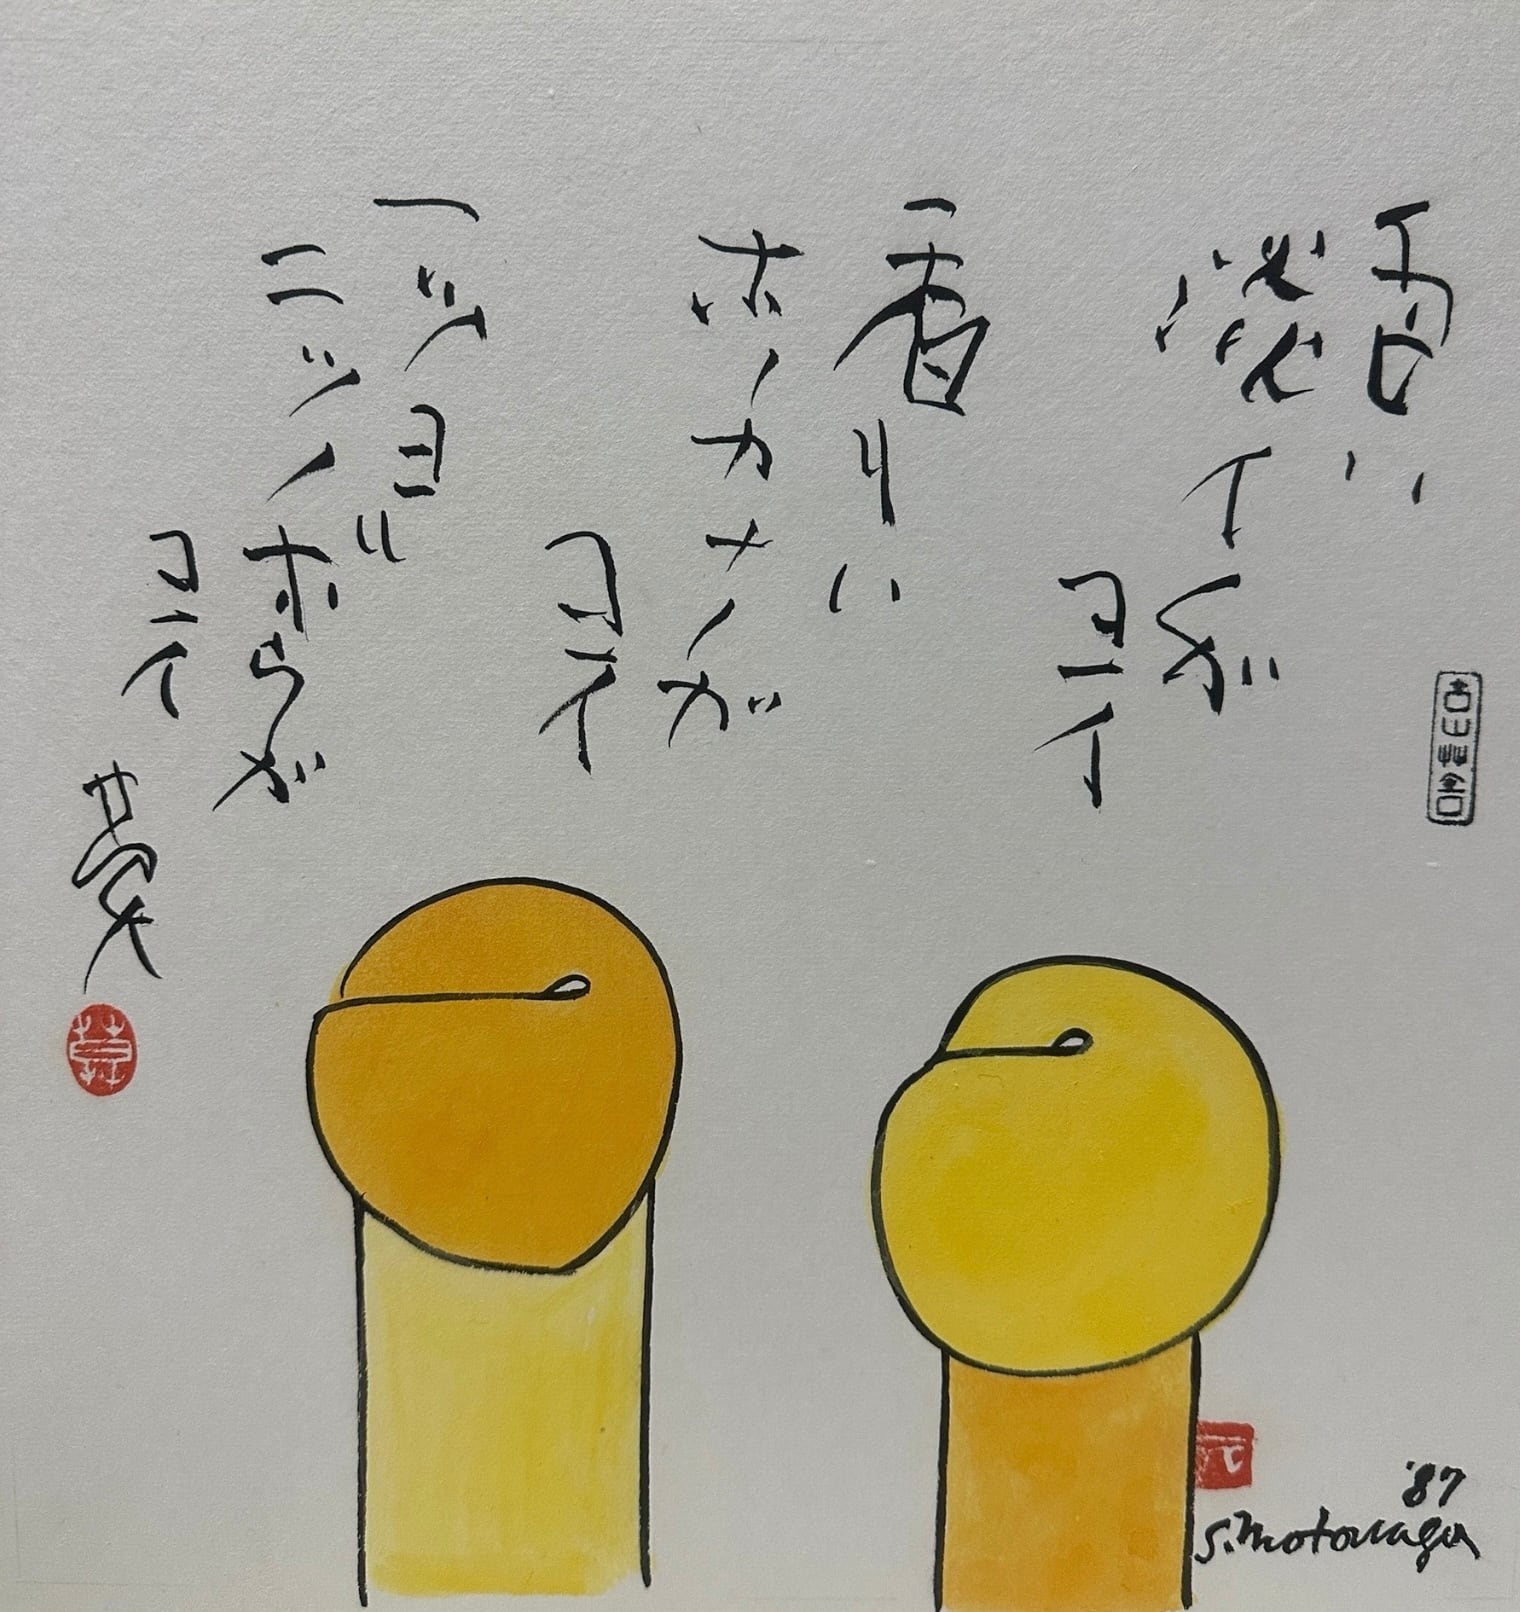 ハ
淡イガ
ヨイ
香リハ
ホノカナノガ
ヨイ
一ツヨリ
二ツノホうガ
ヨイ
'87
S. Motonaga